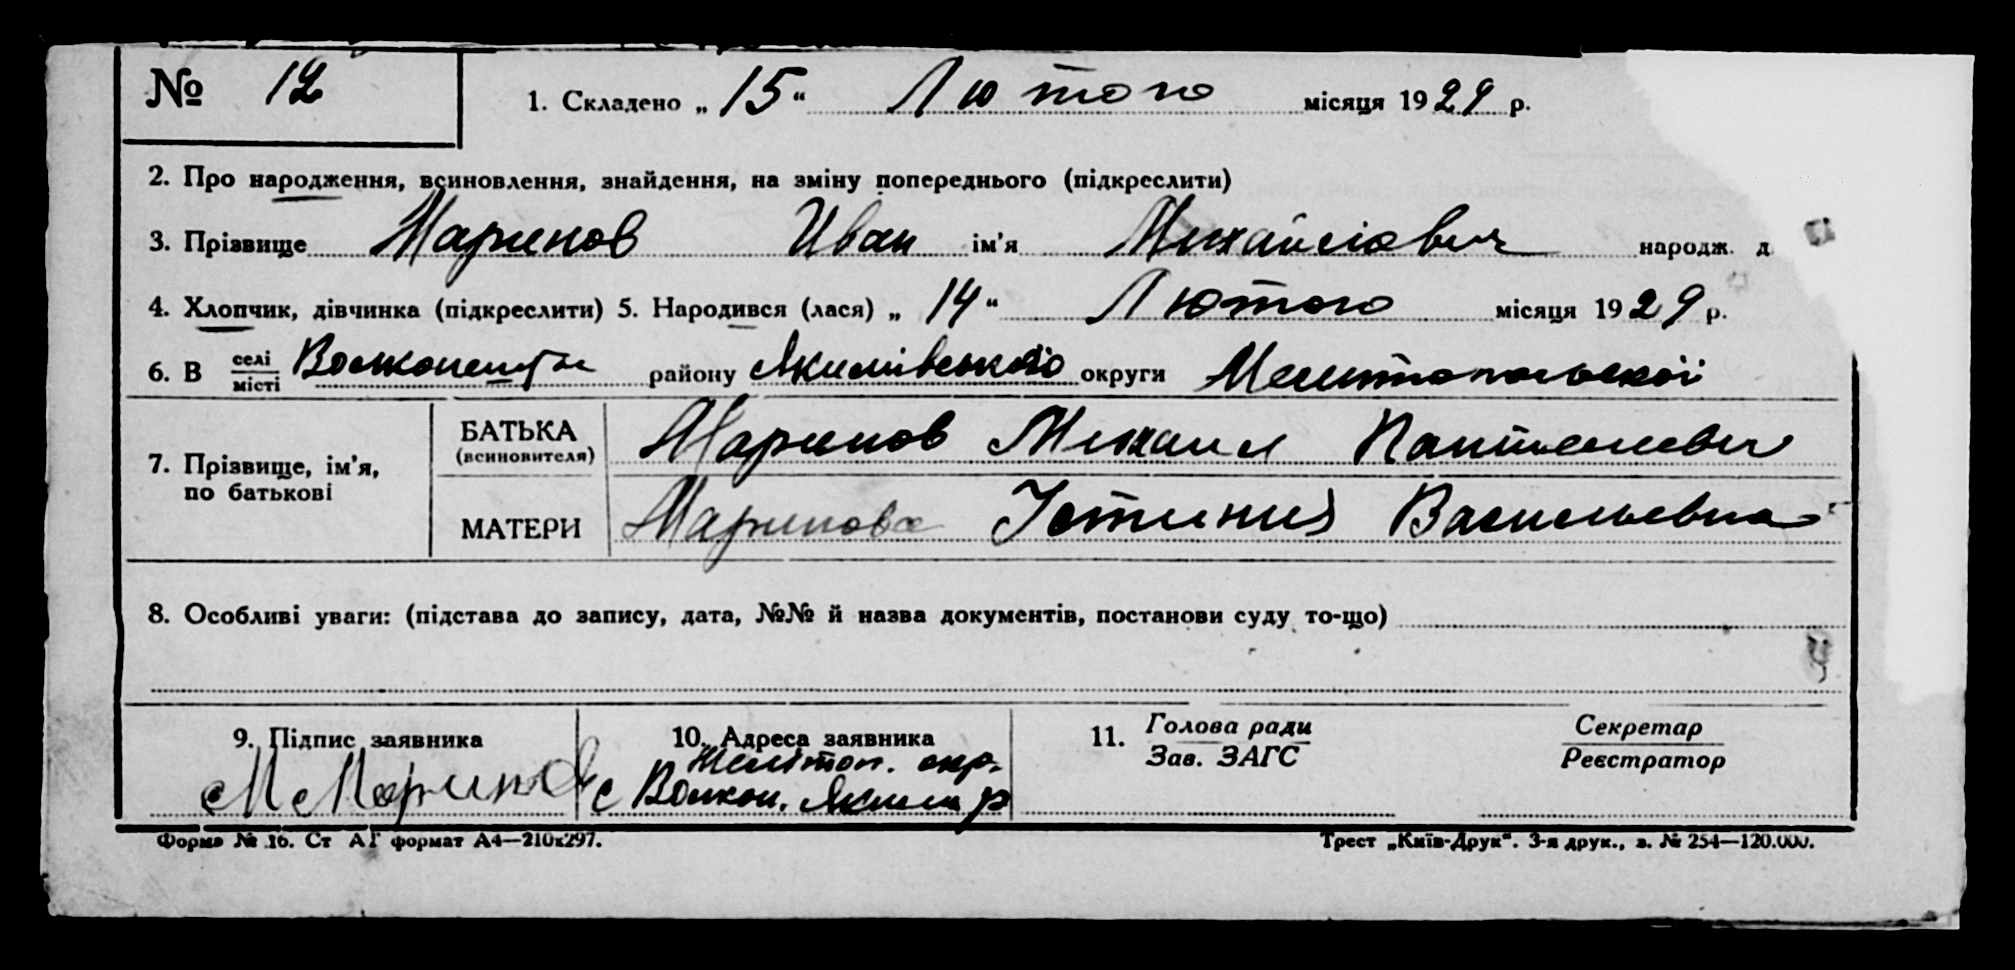 № 12 1. Складено „ 15 “ Лютого місяця 1929 р.
2. Про народження, всиновлення, знайдення, на зміну попереднього (підкреслити)
3. Прізвище Маринов Иван ім’я Михайлович народж. д
4. Хлопчик, дівчинка (підкреслити) 5. Народився (лася) „ 14 “ Лютого місяця 1929 р.
6. В селі місті району Якимівського округи Мелитопольскої
7. Прізвище, ім’я, по батькові
БАТЬКА (всиновителя) Маринов Михаил Пантелеевич
МАТЕРИ Маринова Устиния Васильевна
8. Особливі уваги: (підстава до запису, дата, №№ й назва документів, постанови суду то-що)
9. Підпис заявника 10. Адреса заявника 11. Голова ради Секретар
Зав. ЗАГС Реєстратор
М Маринов Меліт оп. окр.
с Волкон. Яким р
Форма № 16. Ст АГ формат А4—210х297. Трест „Київ-Друк“. 3-я друк., з. № 254—120.000.